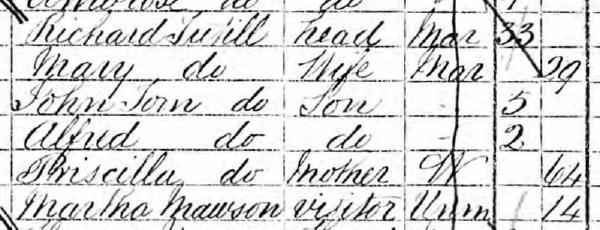 do do
Richard Tufill head Mar 33
Mary do Wife Mar 29
John Tom do Son - 5
Alfred do do - 2
Priscilla do Mother W 64
Martha Mawson visitor Unm 14